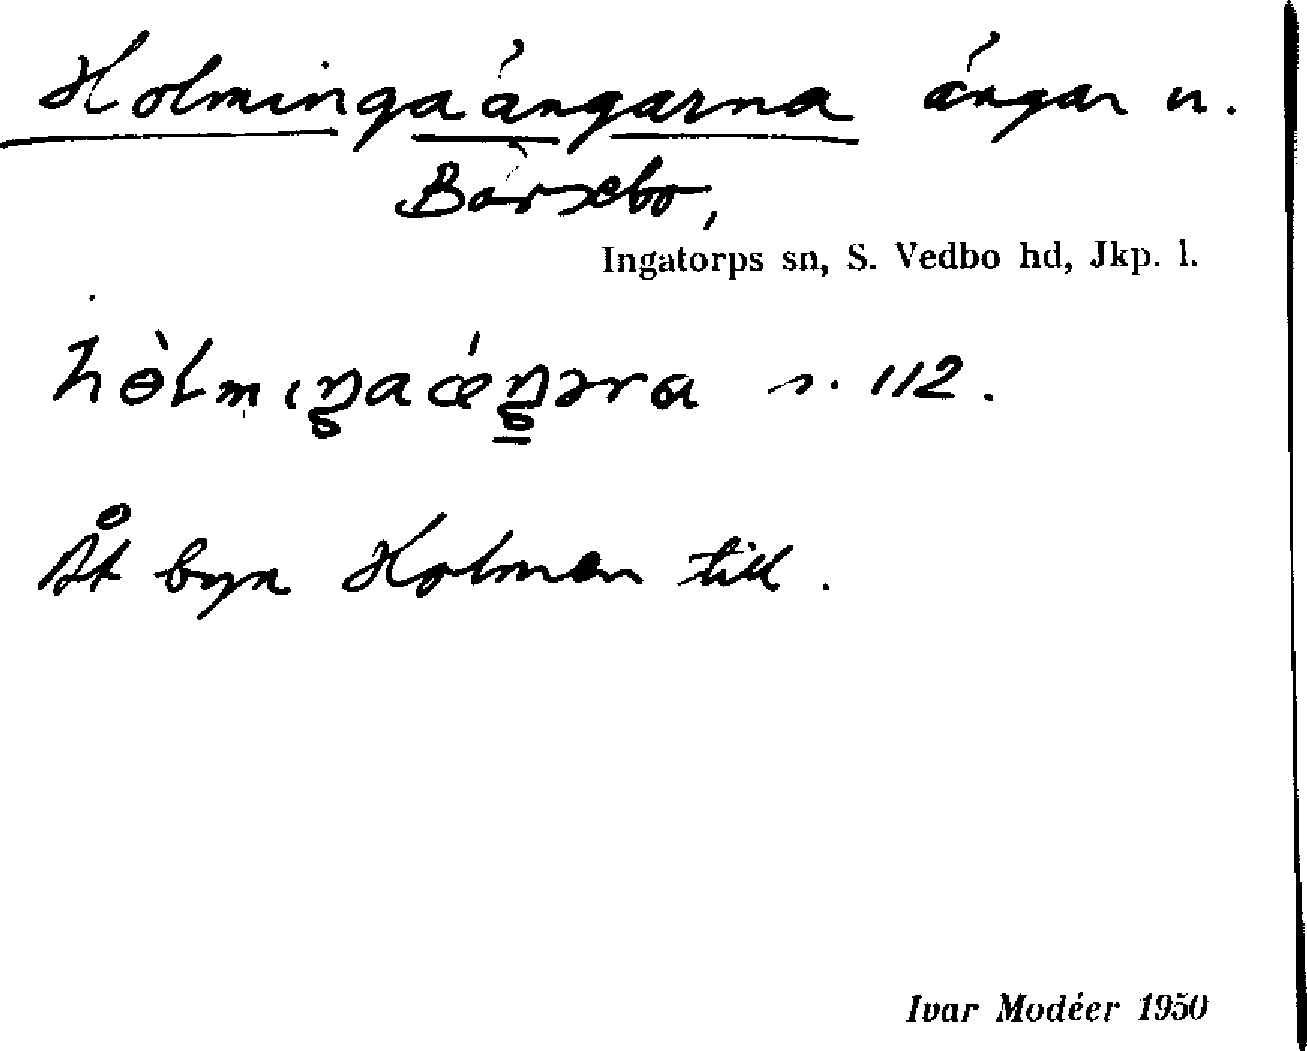 Holmingaängarna ängar u.
Bärsebo,
Ingatorps sn, S. Vedbo hd, Jkp. l.
s. 112.
Åt byn Holmen till.
Ivar Modéer 1950